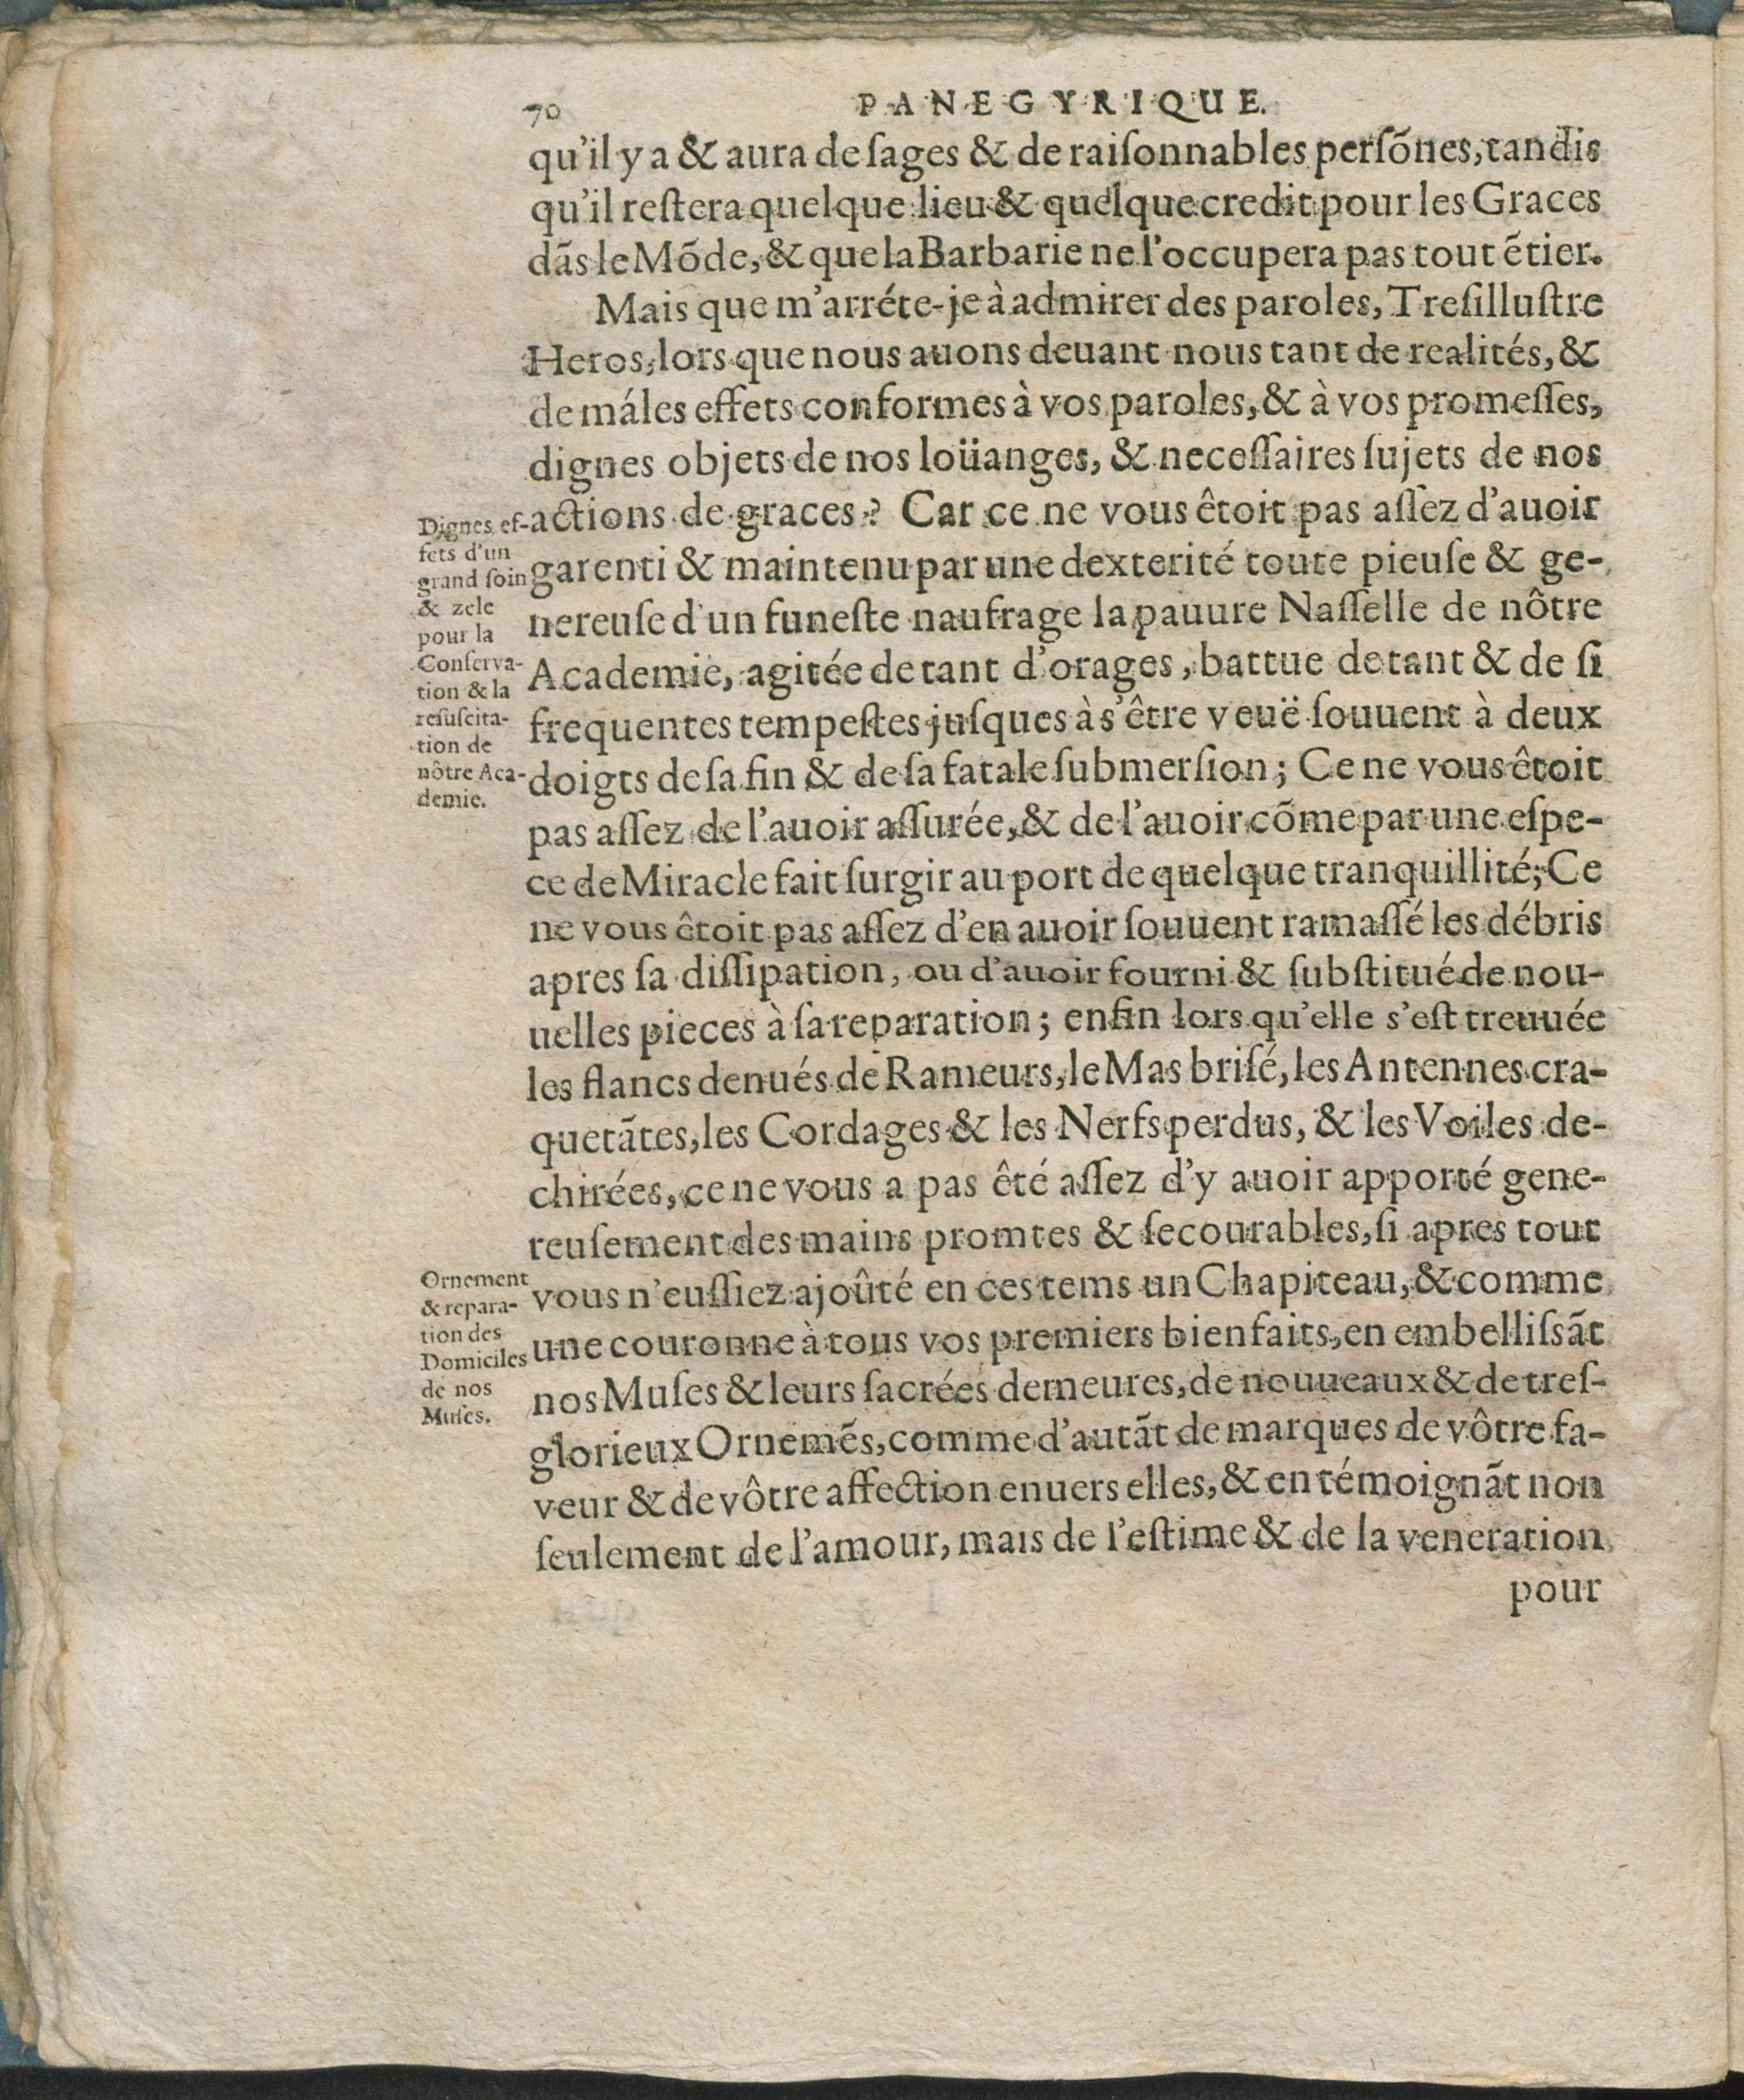 70
PANEGYRIQUE.
qu'il y a & aura de ſages & de raiſonnables perſõnes, tandis
qu'il reſtera quelque lieu & quelque credit pour les Graces
dãs le Mõde, & que la Barbarie ne l'occupera pas tout ẽtier.
Mais que m'arréte-je à admirer des paroles, Treſilluſtre
Heros, lors que nous auons deuant nous tant de realités, &
de máles effets conformes à vos paroles, & à vos promeſſes,
dignes objets de nos loüanges, & neceſſaires ſujets de nos
actions de graces? Car ce ne vous êtoit pas aſſez d'auoir
garenti & maintenu par une dexterité toute pieuſe & ge-
nereuſe d'un funeſte naufrage la pauure Naſſelle de nôtre
Academie, agitée de tant d'orages, battue de tant & de ſi
frequentes tempeſtes juſques à s'être veuë ſouuent à deux
doigts de ſa fin & de ſa fatale ſubmerſion; Ce ne vous êtoit
pas aſſez de l'auoir aſſurée, & de l'auoir cõme par une eſpe-
ce de Miracle fait ſurgir au port de quelque tranquillité; Ce
ne vous êtoit pas aſſez d'en auoir ſouuent ramaſſé les débris
apres ſa diſſipation, ou d'auoir fourni & ſubſtitué de nou-
uelles pieces à ſa reparation; enfin lors qu'elle s'eſt treuuée
les flancs denués de Rameurs, le Mas briſé, les Antennes cra-
quetãtes, les Cordages & les Nerfs perdus, & les Voiles de-
chirées, ce ne vous a pas êté aſſez d'y auoir apporté gene-
reuſement des mains promtes & ſecourables, ſi apres tout
vous n'euſſiez ajoûté en ces tems un Chapiteau, & comme
une couronne à tous vos premiers bienfaits, en embelliſsãt
nos Muſes & leurs ſacrées demeures, de nouueaux & de treſ-
glorieux Ornemẽs, comme d'autãt de marques de vôtre fa-
veur & de vôtre affection enuers elles, & en témoignãt non
ſeulement de l'amour, mais de l'eſtime & de la veneration
pour
Dignes ef-
fets d'un
grand ſoin
& zele
pour la
Conſerva-
tion & la
reſuſcita-
tion de
nôtre Aca-
demie.
Ornement
& repara-
tion des
Domiciles
de nos
Muſes.